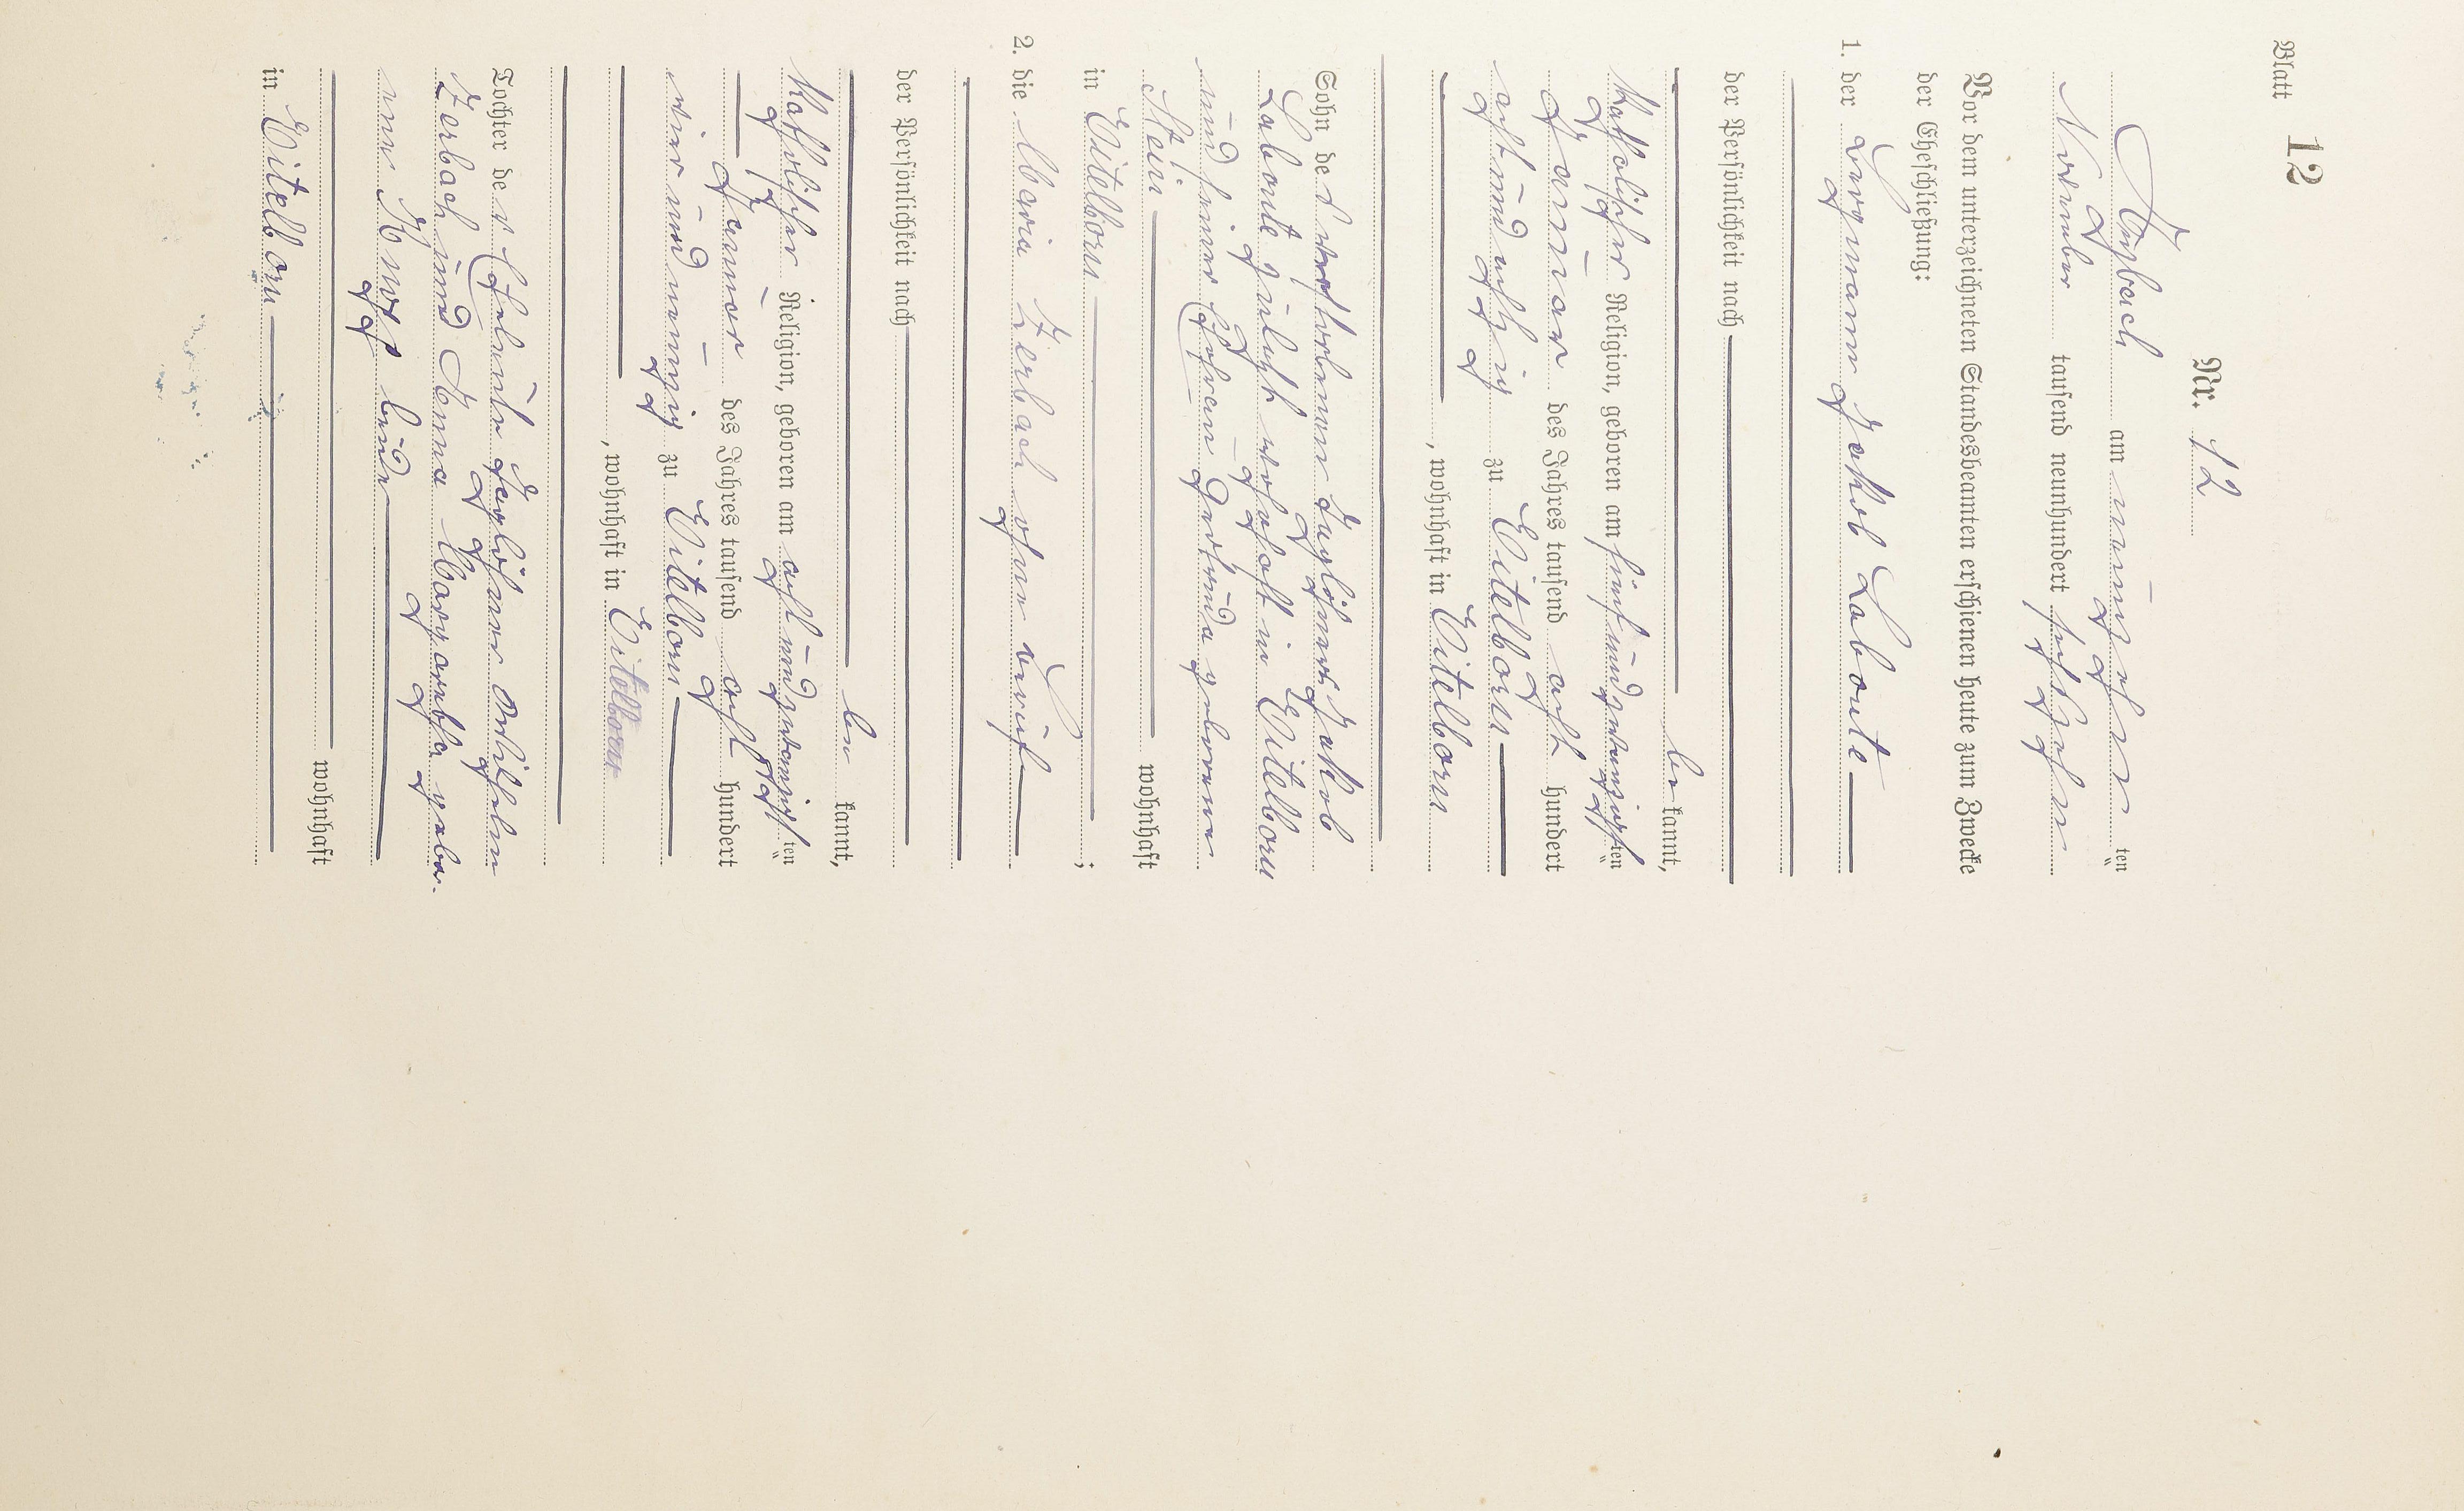 Blatt 12
Nr. 12
Arzbach am neunzehn ten
November tausend neunhundert sechszehn
Vor dem unterzeichneten Standesbeamten erschienen heute zum Zwecke
der Eheschließung:
1. der Bergmann Jakob Labonte
der Persönlichkeit nach
be kannt,
katholischer Religion, geboren am fünfundzwanzigsten
Januar des Jahres tausend acht hundert
achtundachtzig zu Eitelborn
, wohnhaft in Eitelborn
Sohn des verstorbenen Tagelöhners Jakob
Labonte zuletzt wohnhaft in Eitelborn
und seiner Ehefrau Gertruda geborene
Stein wohnhaft
in Eitelborn ;
2. die Maria Zerbach ohne Beruf
der Persönlichkeit nach
be kannt,
katholischer Religion, geboren am achtundzwanzigsten
Januar des Jahres tausend acht hundert
vierundneunzig zu Eitelborn
, wohnhaft in Eitelborn
Tochter der Eheleute Tagelöhner Wilhelm
Zerbach und Anna Margaretha gebo-
rene Knopp beide
wohnhaft
in Eitelborn